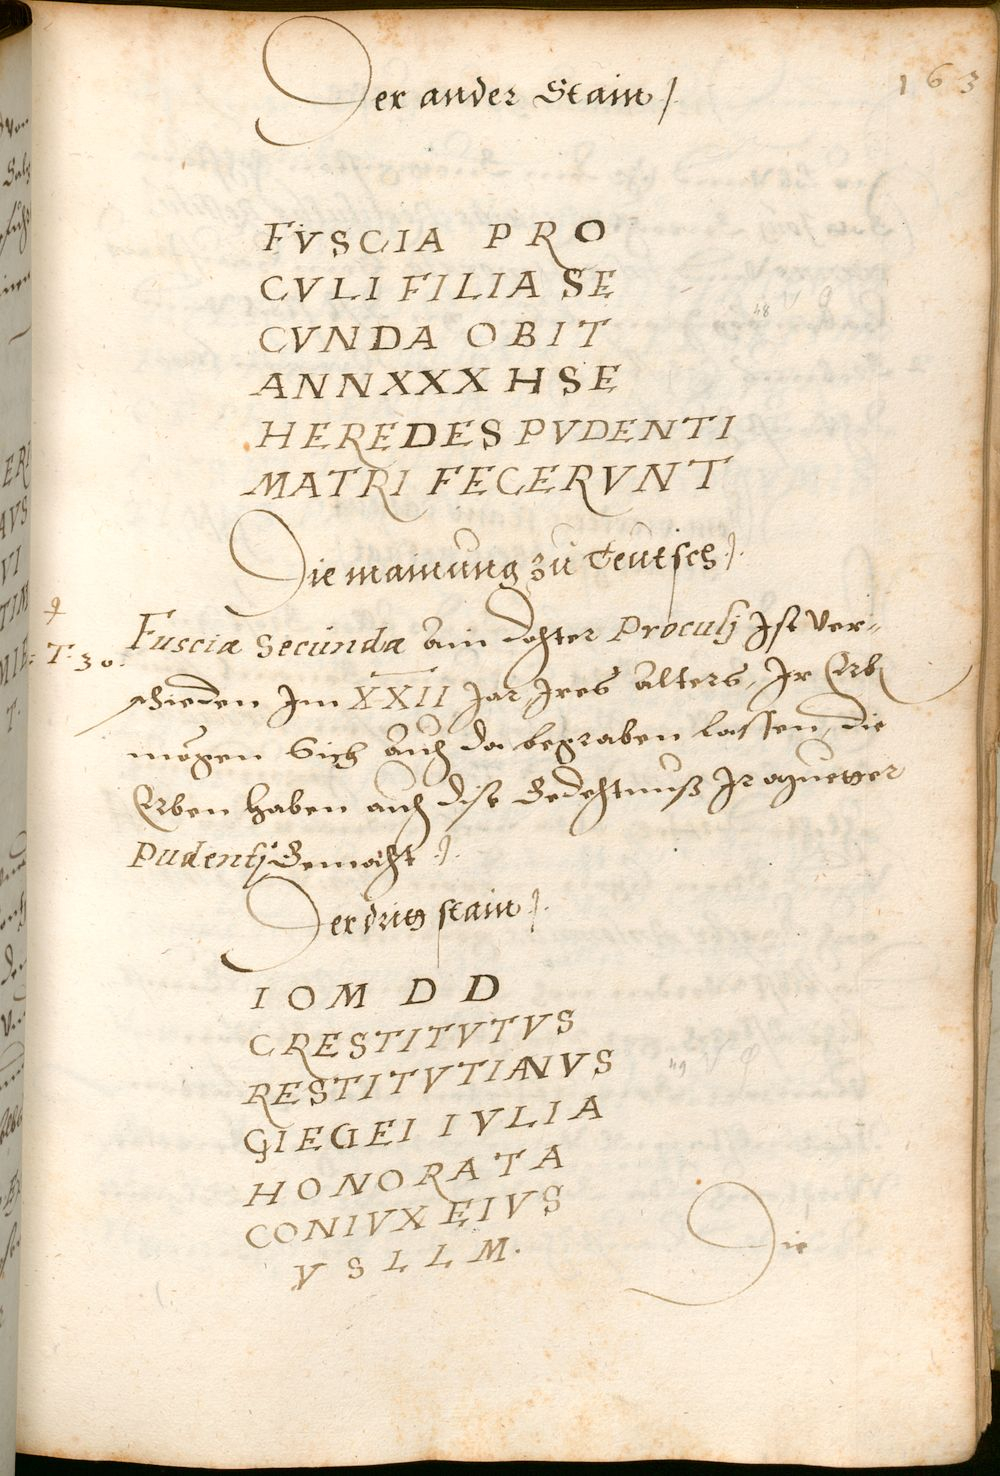 163
Der ander Stain
FVSCIA PRO
CVLI FILIA SE
CVNDA OBIT
ANNXXX HSE
HEREDES PVDENTI
MATRI FECERVNT
Die mainung zu Teutsch
Fuscia Secunda ain dochter Proculj Ist Ver-
T. 30.
schieden Im XXII Jar Ires alters, Ir Erb
mögen Sich auch da begraben lassen, die
Erben haben auch dise Gedechtnuß Ir
Pudentj Gemacht
Der drit stain
I O M D D
CRESTITVTVS
RESTITVTIANVS
GIEGEI IVLIA
HONORATA
CONIVX EIVS
V S L L M.
Die